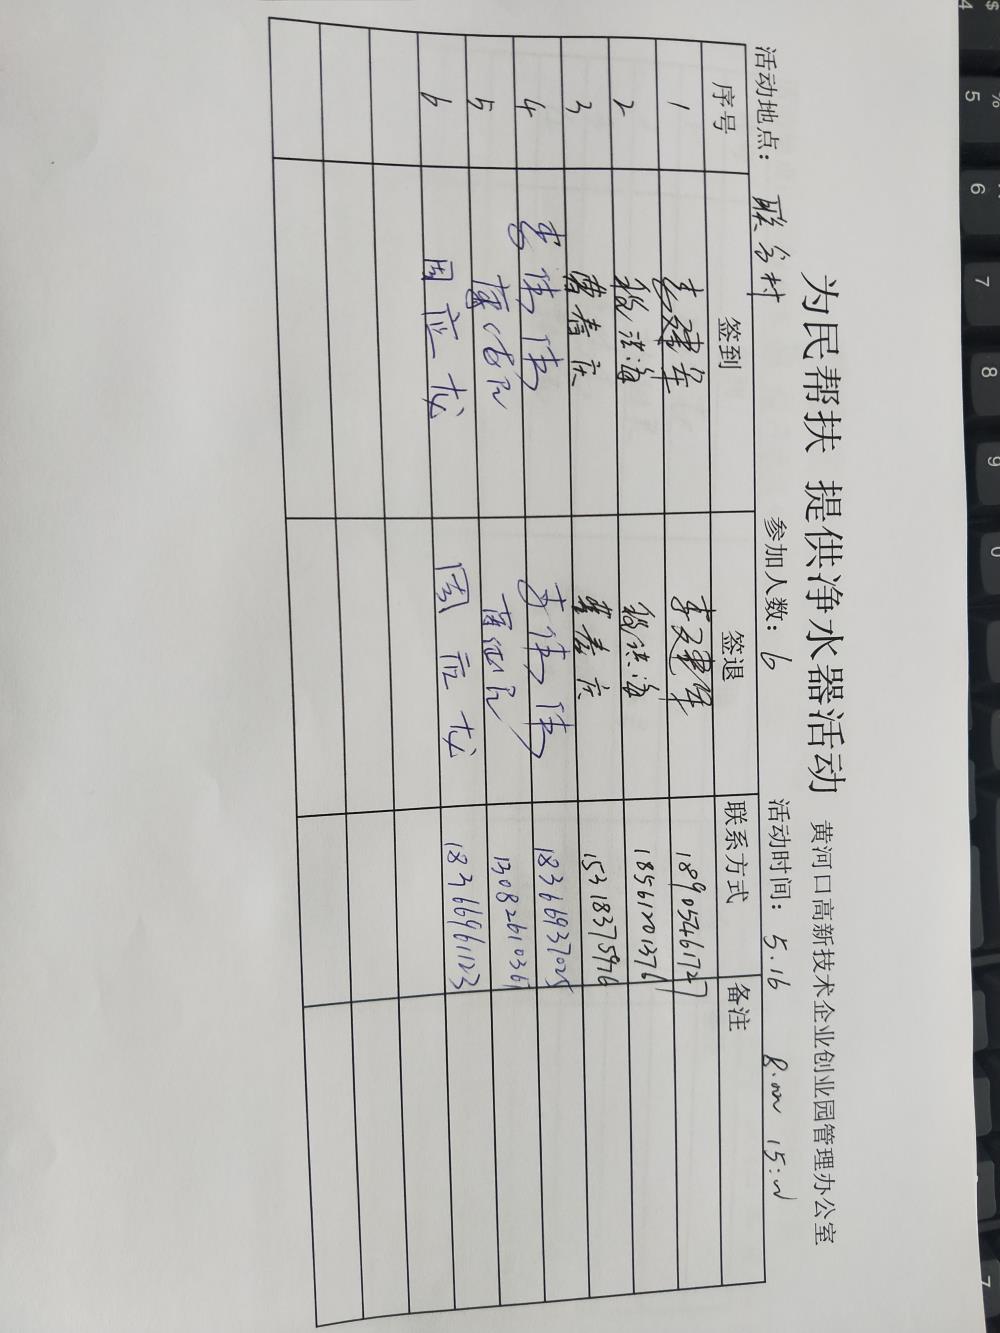 为民帮扶 提供净水器活动 黄河口高新技术企业创业园管理办公室
活动地点： 联合村 参加人数：6 活动时间：5.16 8:00 15:
序号 签到 签退 联系方式 备注
1 李建军 李建军 18905461727
2 海 海 18561201376
3 曹春庆 曹春庆 15318375976
4 李伟伟 李伟伟 18366937025
5 13082610361
6 周立龙 周立龙 18366961123
$ 4
% 5
6
7
8
9
0